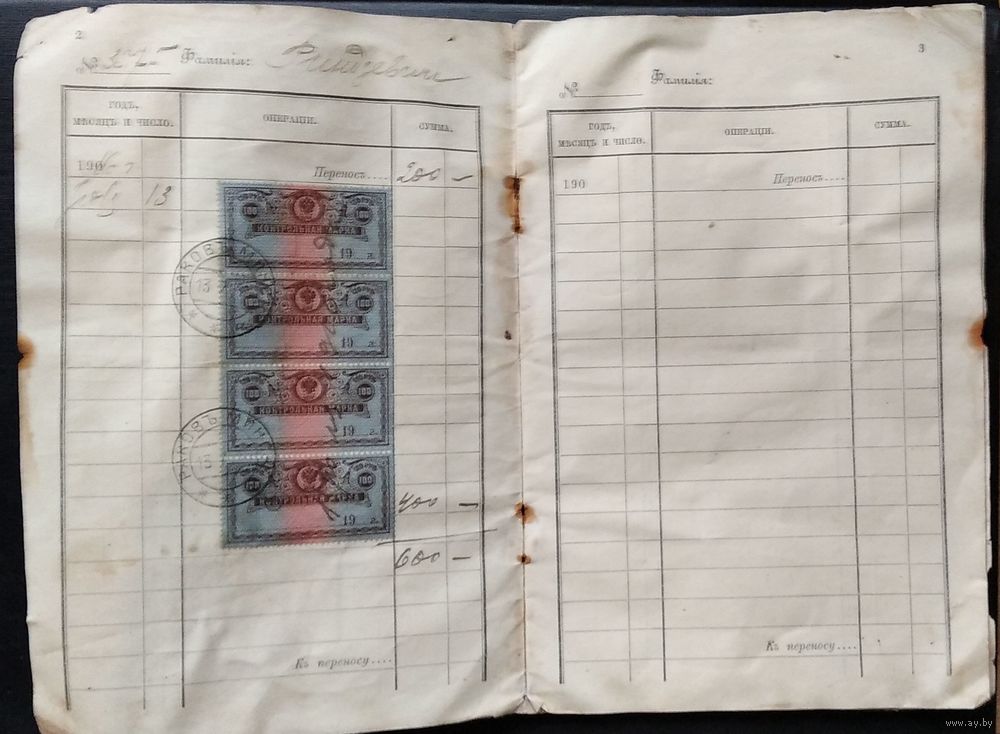 2
№ Фамилія:
ГОДЪ, МѢСЯЦЪ И ЧИСЛО.
ОПЕРАЦІИ.
СУММА.
190
Переносъ.... 200 —
13
100 100
КОНТРОЛЬНАЯ МАРКА
19 г.
100 100
КОНТРОЛЬНАЯ МАРКА
19 г.
100 100
КОНТРОЛЬНАЯ МАРКА
19 г.
100 100
КОНТРОЛЬНАЯ МАРКА
19 г.
РАКОВЪ
13
РАКОВЪ
13
400 —
600 —
Къ переносу....
3
№ Фамилія:
ГОДЪ, МѢСЯЦЪ И ЧИСЛО.
ОПЕРАЦІИ.
СУММА.
190
Переносъ....
Къ переносу....
www.ay.by